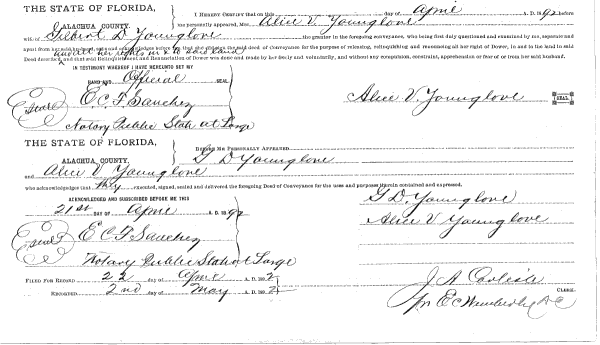 THE STATE OF FLORIDA,
ALACHUA COUNTY.
I HEREBY CERTIFY that on this day of April A. D. 1892 before
me personally appeared, Mrs. Alice V. Younglove
wife of Gilbert D. Younglove the grantor in the foregoing conveyance, who being first duly questioned and examined by me, separate and
apart from her husband, did acknowledge before me that she executed the said deed of Conveyance for the purpose of releasing, relinquishing and renouncing all her right of Dower, in and to the land in said
Deed described, and that said Relinquishment and Renunciation of Dower was done and made by her freely and voluntarily, and without any compulsion, constraint, apprehension or fear of or from her said husband.
all her rights in & to said land
IN TESTIMONY WHEREOF I HAVE HEREUNTO SET MY
HAND AND Official SEAL
Seal E C F Sanchez
Alice V. Younglove SEAL.
Notary Public State at Large
THE STATE OF FLORIDA,
ALACHUA COUNTY.
BEFORE ME PERSONALLY APPEARED
G D Younglove
and Alice V. Younglove
who acknowledges that they executed, signed, sealed and delivered the foregoing Deed of Conveyance for the uses and purposes therein contained and expressed.
ACKNOWLEDGED AND SUBSCRIBED BEFORE ME THIS
G D. Younglove
21st DAY OF April A. D. 1892
Alice V Younglove
Seal E C F Sanchez
Notary Public State at Large
FILED FOR RECORD 22 day of April A. D. 1892
J A Carlisle
CLERK.
RECORDED 2nd day of May A. D. 1892
pr E C Wimberly D C